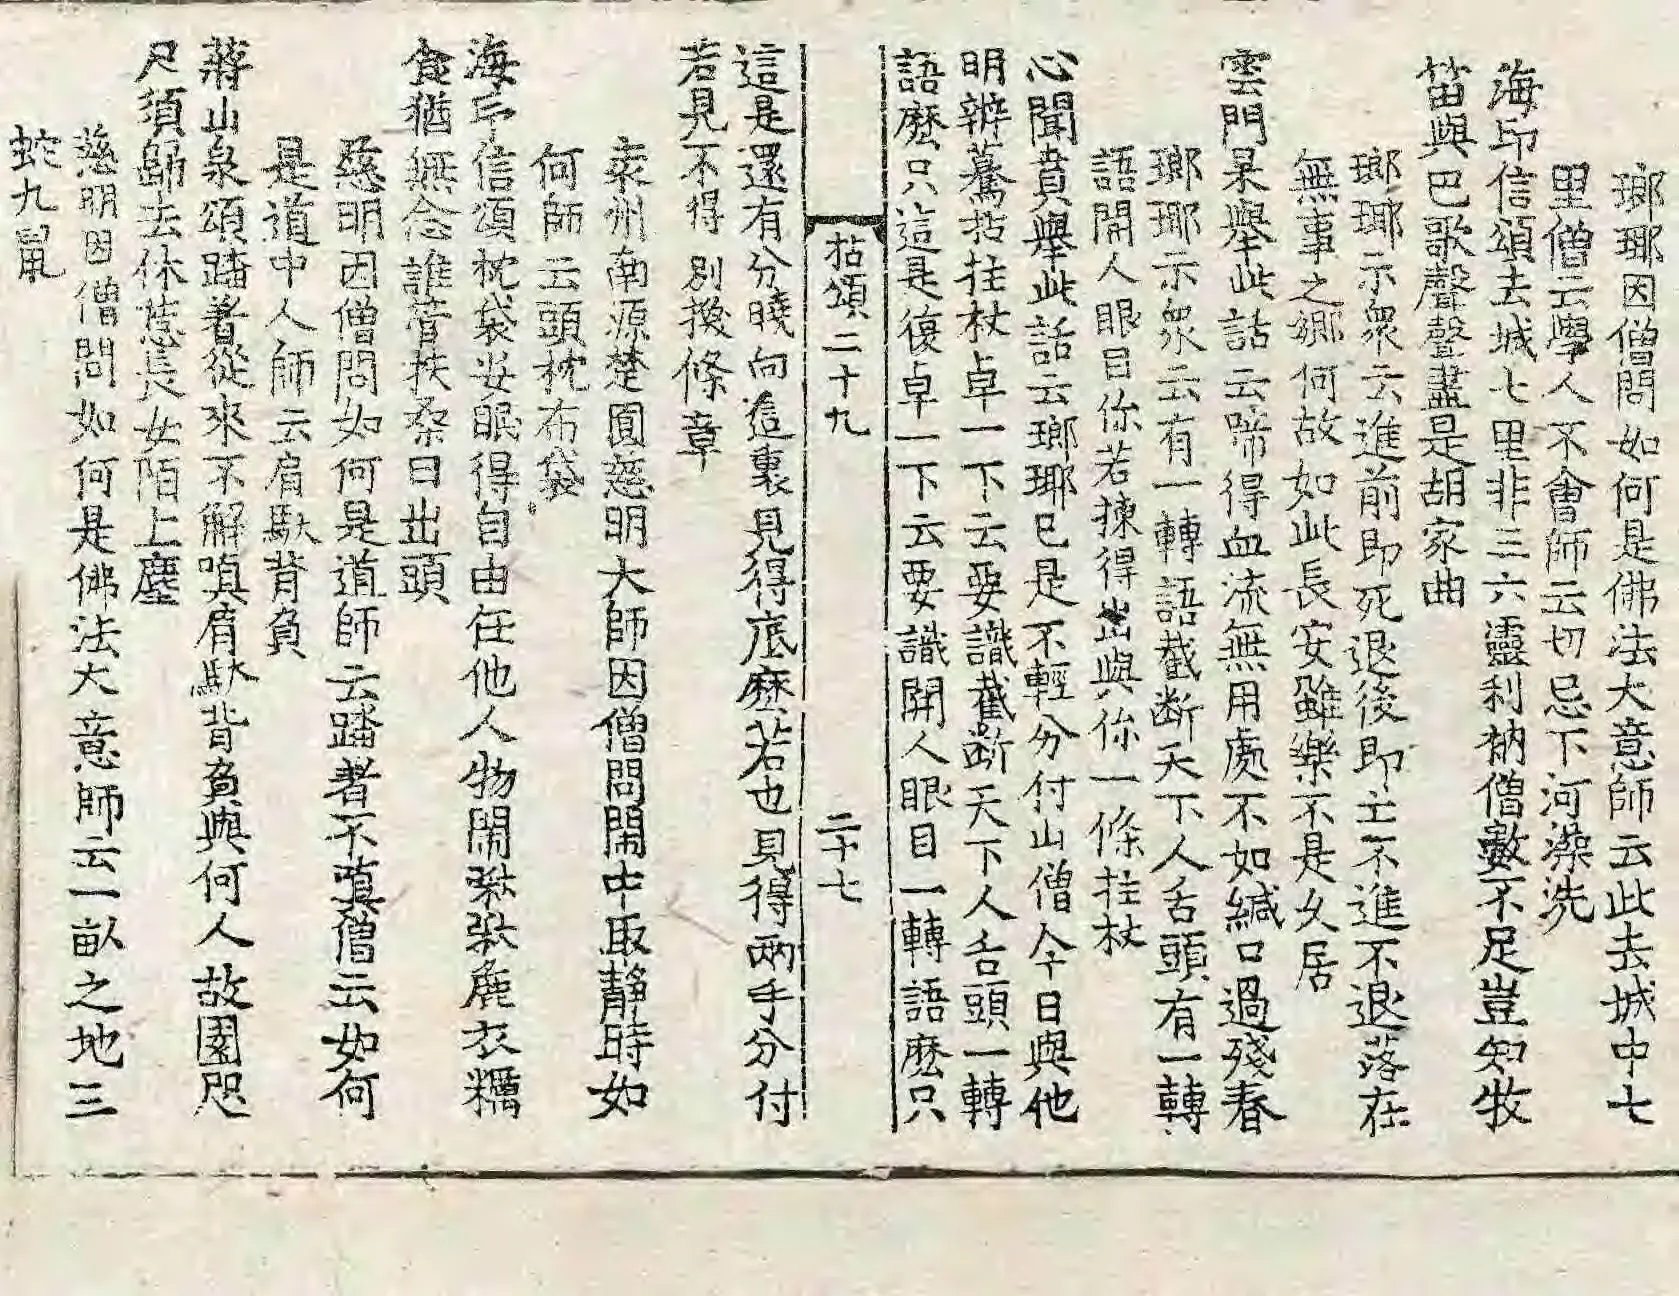 瑯瑘因僧問如何是佛法大意師云此去城中七
里僧云學人不會師云切忌下河澡洗
海印信頌去城七里非三六靈利衲僧數不足豈知牧
笛與巴歌聲聲盡是胡家曲
瑯瑘示衆云進前即死退後即亡不進不退落在
無事之鄉何故如此長安雖樂不是久居
雲門杲舉此話云啼得血流無用處不如緘口過殘春
瑯瑘示衆云有一轉語截斷天下人舌頭有一轉
語開人眼目你若揀得出與你一條拄杖
心聞賁舉此話云瑯瑘已是不輕分付山僧今日與他
明辨驀拈拄杖卓一下云要識截斷天下人舌頭一轉
語麽只這是復卓一下云要識開人眼目一轉語麽只
拈頌二十九
二十七
這是還有分曉向這裏見得底麽若也見得兩手分付
若見不得別換條章
袁州南源楚圓慈明大師因僧問閙中取靜時如
何師云頭枕布袋
海印信頌枕袋安眠得自由任他人物閙啾啾麁衣糲
食猶無念誰管扶桒日出頭
慈明因僧問如何是道師云踏著不嗔僧云如何
是道中人師云肩馱背負
蔣山泉頌踏著從來不解嗔肩馱背負與何人故園咫
尺須歸去休惹長安陌上塵
慈明因僧問如何是佛法大意師云一畝之地三
蛇九鼠